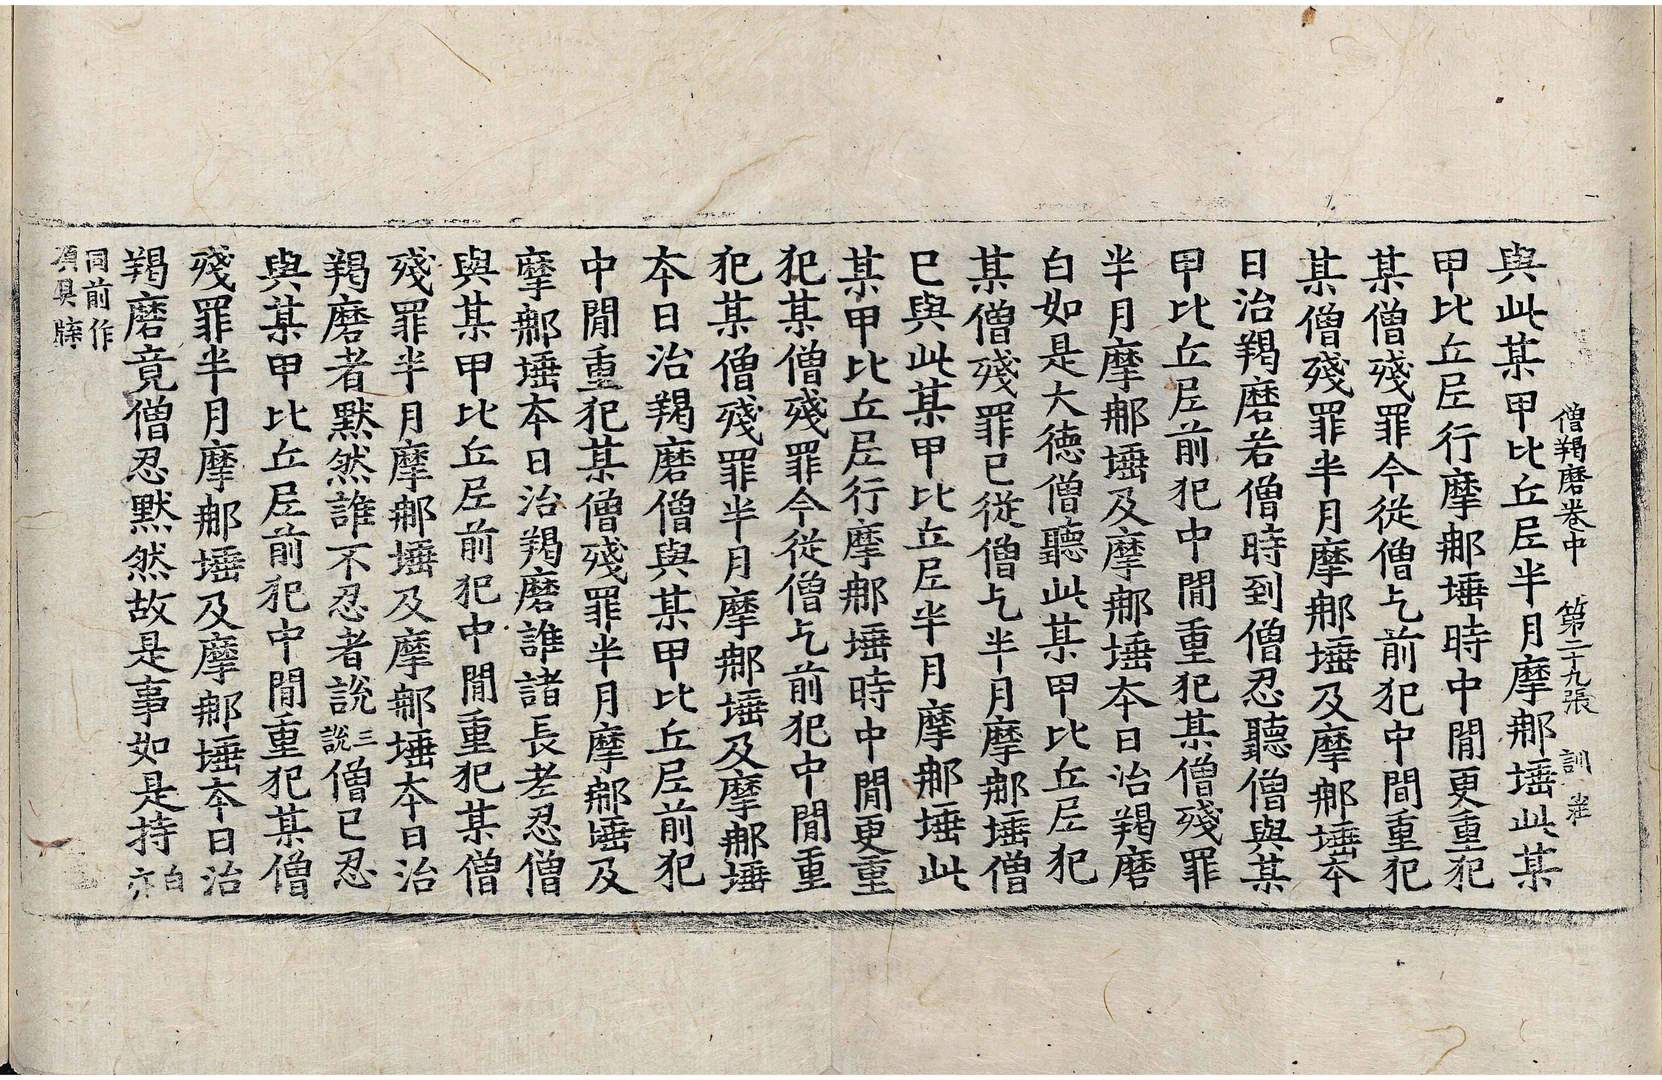 僧羯磨卷中 第二十九張 訓
與此某甲比丘尼半月摩那埵此某
甲比丘尼行摩那埵時中閒更重犯
某僧殘罪今從僧乞前犯中間重犯
某僧殘罪半月摩那埵及摩那埵夲
日治羯磨若僧時到僧忍聽僧與某
甲比丘尼前犯中閒重犯某僧殘罪
半月摩那埵及摩那埵夲日治羯磨
白如是大德僧聽此某甲比丘尼犯
某僧殘罪已從僧乞半月摩那埵僧
已與此某甲比丘尼半月摩那埵此
某甲比丘尼行摩那埵時中閒更重
犯某僧殘罪今從僧乞前犯中閒重
犯某僧殘罪半月摩那埵及摩那埵
夲日治羯磨僧與某甲比丘尼前犯
中閒重犯某僧殘罪半月摩那埵及
摩那埵夲日治羯磨誰諸長老忍僧
與某甲比丘尼前犯中閒重犯某僧
殘罪半月摩那埵及摩那埵夲日治
羯磨者默然誰不忍者說三說僧已忍
與某甲比丘尼前犯中閒重犯某僧
殘罪半月摩那埵及摩那埵夲日治
羯磨竟僧忍默然故是事如是持白亦
同前作
須具牒